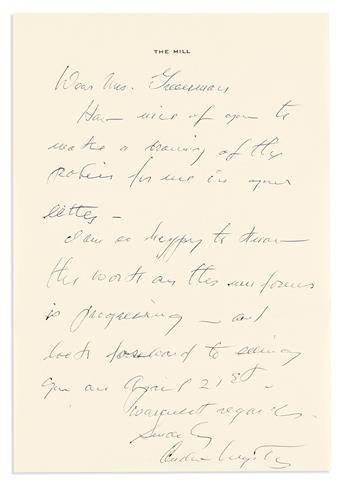 THE MILL
Dear Mrs. Freeman
How nice of you to
make a drawing of the
for me in your
letter –
I am so happy to know
the work on the uniforms
is progressing – and
look forward to seeing
you on April 21st.
Warmest regards.
Sincerely
Andrew Wyeth